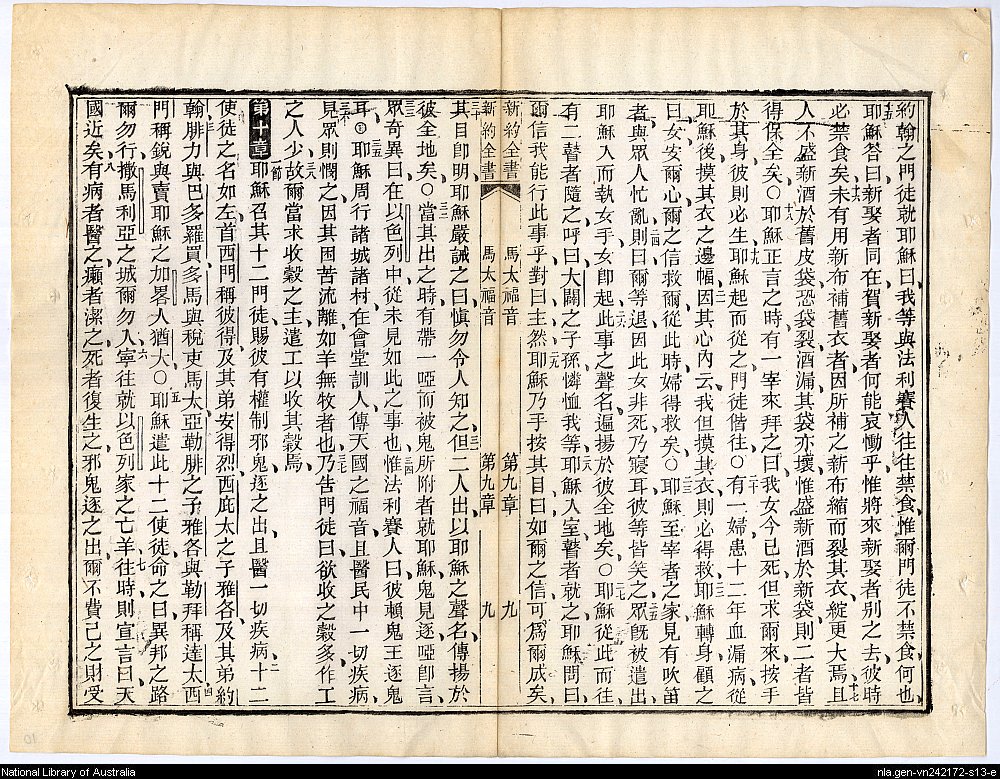 約翰之門徒就耶穌曰我等與法利賽人往往禁食惟爾門徒不禁食何也
耶穌答曰新娶者同在賀新娶者何能哀慟乎惟將來新娶者別之去彼時
必禁食矣未有用新布補舊衣者因所補之新布縮而裂其衣綻更大焉且
人不盛新酒於舊皮袋恐袋裂酒漏其袋亦壞惟盛新酒於新袋則二者皆
得保全矣○耶穌正言之時有一宰來拜之曰我女今已死但求爾來按手
於其身彼則必生耶穌起而從之門徒偕往○有一婦患十二年血漏病從
耶穌後摸其衣之邊幅因其心內云我但摸其衣則必得救耶穌轉身顧之
曰女安爾心爾之信救爾從此時婦得救矣○耶穌至宰者之家見有吹笛
者與眾人忙亂則曰爾等退因此女非死乃寢耳彼等皆笑之眾旣被遣出
耶穌入而執女手女卽起此事之聲名遍揚於彼全地矣○耶穌從此而往
有二瞽者隨之呼曰大闢之子孫憐恤我等耶穌入室瞽者就之耶穌問曰
爾信我能行此事乎對曰主然耶穌乃手按其目曰如爾之信可爲爾成矣
新約全書 馬太福音 第九章 九
新約全書 馬太福音 第九章 九
其目卽明耶穌嚴誡之曰愼勿令人知之但二人出以耶穌之聲名傳揚於
彼全地矣○當其出之時有帶一啞而被鬼所附者就耶穌鬼見逐啞卽言
眾奇異曰在以色列中從未見如此之事也惟法利賽人曰彼賴鬼王逐鬼
耳○耶穌周行諸城諸村在會堂訓人傳天國之福音且醫民中一切疾病
見眾則憫之因其困苦流離如羊無牧者也乃告門徒曰欲收之穀多作工
之人少故爾當求收穀之主遣工以收其穀焉
第十章 一節 耶穌召其十二門徒賜彼有權制邪鬼逐之出且醫一切疾病十二
使徒之名如左首西門稱彼得及其弟安得烈西庇太之子雅各及其弟約
翰腓力與巴多羅買多馬與稅吏馬太亞勒腓之子雅各與勒拜稱達太西
門稱銳與賣耶穌之加畧人猶大○耶穌遣此十二使徒命之曰異邦之路
爾勿行撒馬利亞之城爾勿入寧往就以色列家之亡羊往時則宣言曰天
國近矣有病者醫之癩者潔之死者復生之邪鬼逐之出爾不費己之財受
National Library of Australia
nla.gen-vn242172-s13-e